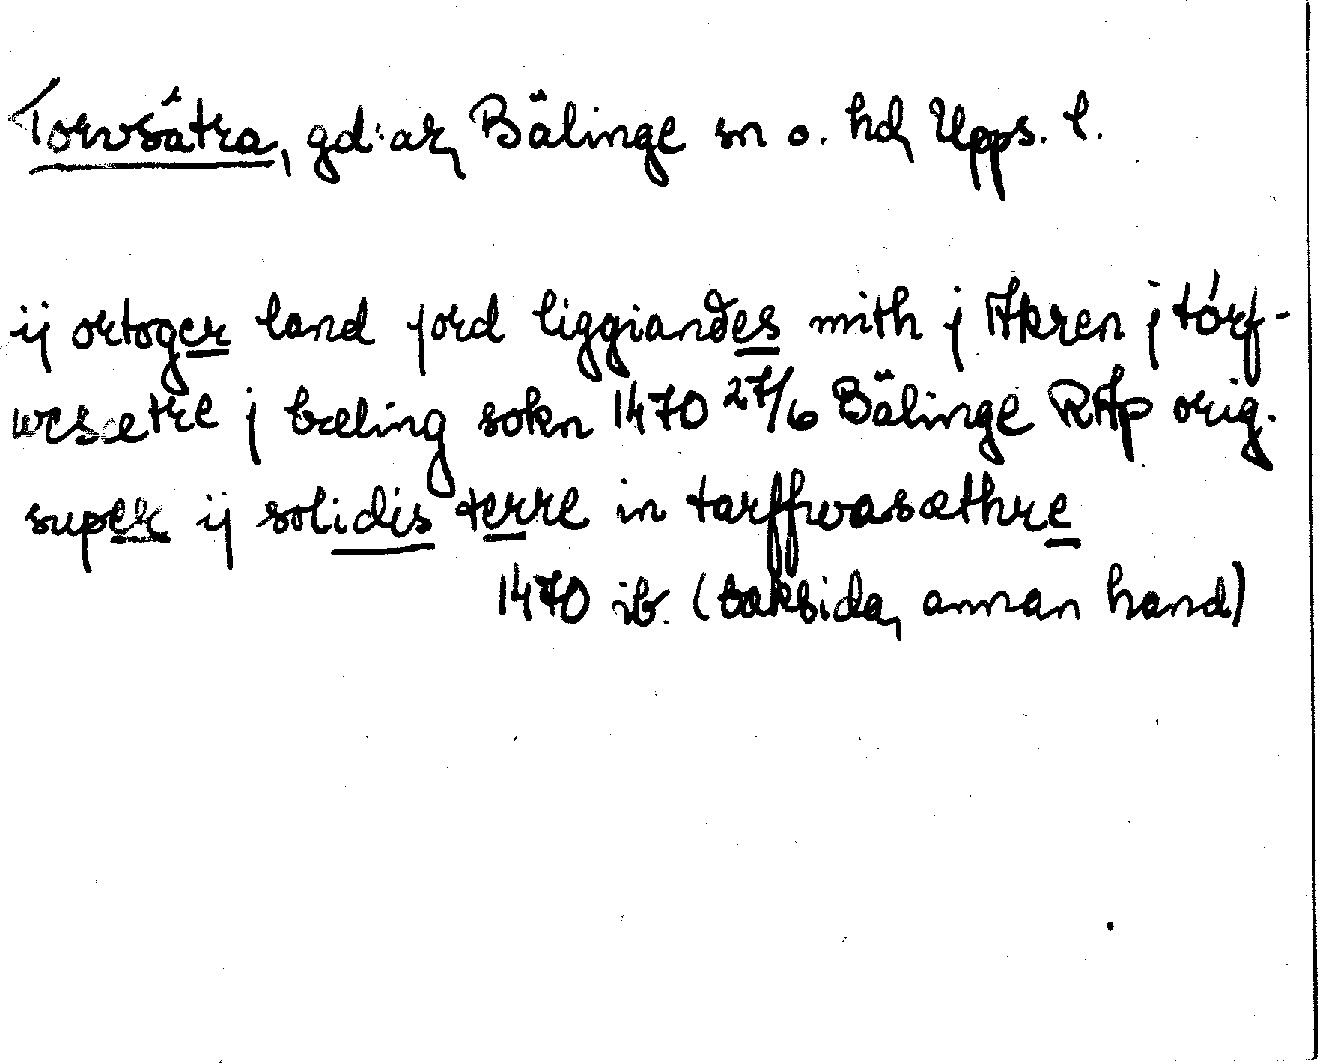 Torvsätra, gd:ar, Bälinge sn o. hd, Upps. l.
ij ortoger land jord liggiandes mith j Akren j tórf-
wesætre j bæling sokn 1470 27/6 Bälinge RAp orig.
super ij solidis terre in tarffwasæthre
1470 ib. (baksida, annan hand)